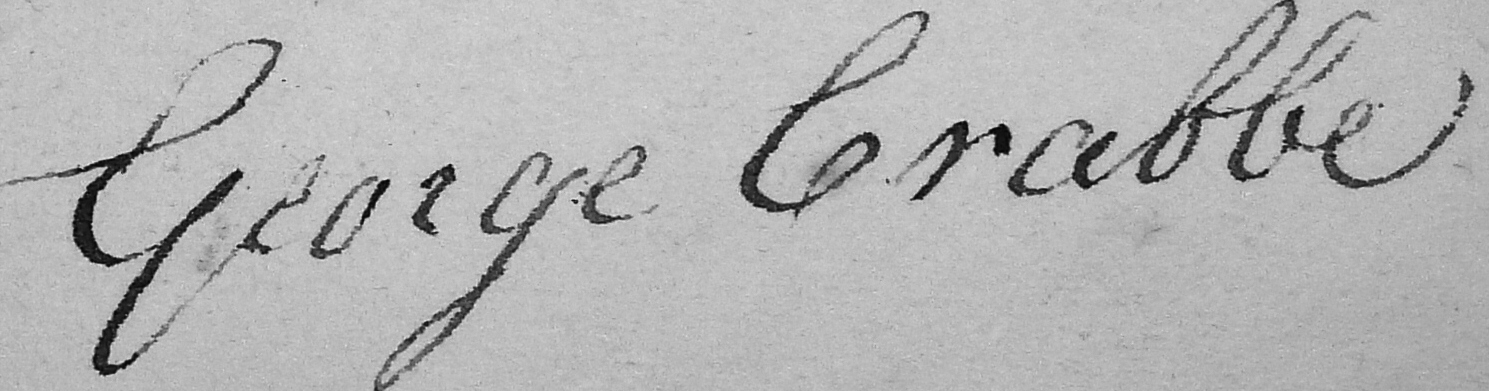 George Crabbe